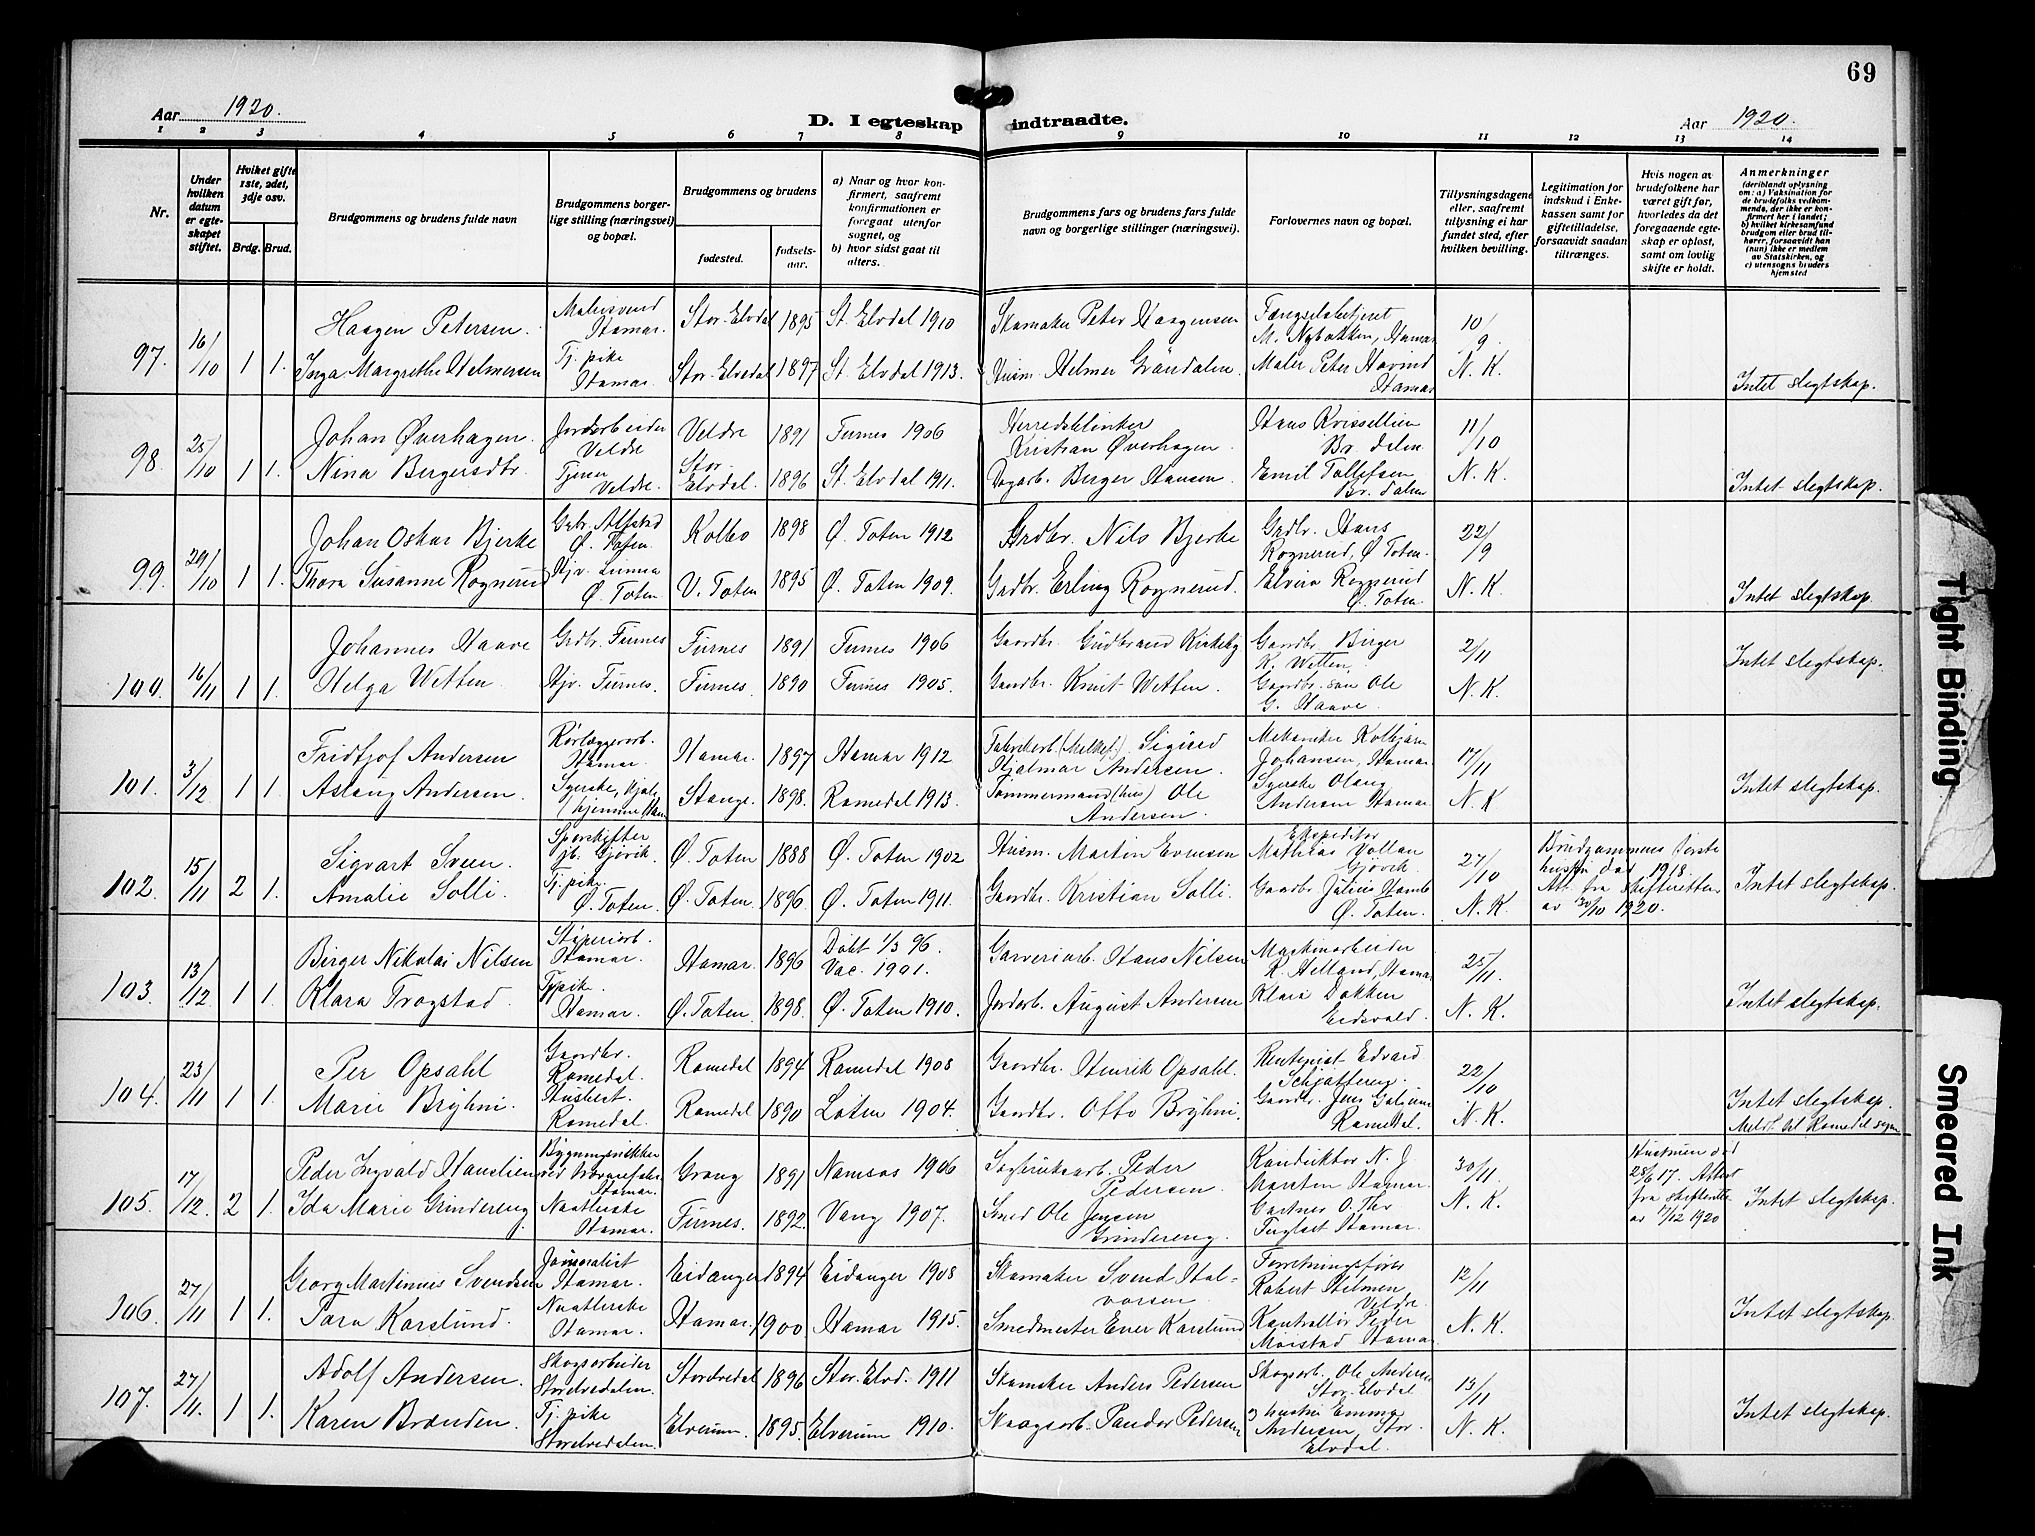 69
Aar 1920.
D. I egteskap indtraadte.
Aar 1920.
1 2 3 4 5 6 7 8 9 10 11 12 13 14
Nr.
Under hvilken datum er egteskapet stiftet.
Hvilket gifte 1ste, 2det, 3dje osv.
Brdg. Brud.
Brudgommens og brudens fulde navn
Brudgommens borgerlige stilling (næringsvei) og bopæl.
Brudgommens og brudens
fødested.
fødselsaar.
a) Naar og hvor konfirmert, saafremt konfirmationen er foregaat utenfor sognet, og
b) hvor sidst gaat til alters.
Brudgommens fars og brudens fars fulde navn og borgerlige stillinger (næringsvei).
Forlovernes navn og bopæl.
Tillysningsdagene eller, saafremt tillysning ei har fundet sted, efter hvilken bevilling.
Legitimation for indskud i Enkekassen samt for giftetilladelse, forsaavidt saadan tiltrænges.
Hvis nogen av brudefolkene har været gift før, hvorledes da det foregaaende egteskap er opløst, samt om lovlig skifte er holdt.
Anmerkninger
(deriblandt oplysning om: a) Vaksination for de brudefolks vedkommende, der ikke er konfirmert her i landet; b) hvilket kirkesamfund brudgom eller brud tilhører, forsaavidt han (hun) ikke er medlem av Statskirken, og c) utensogns bruders hjemsted
97. 16/10 1 1.
Haagen Petersen. Malersvend Hamar. Stor-Elvdal 1895 St. Elvdal 1910 Skomaker Peter Haagensen Fængselsbetjent M. Nybakken, Hamar 10/9.
Inga Margrethe Helmersen Tj. pike Hamar. Stor-Elvedal 1897 St. Elvdal 1913. Husm. Helmer Grøndalen. Maler Peter Havind Hamar N. K. Intet slegtskap.
98. 25/10 1 1.
Johan Øverhagen. Jordarbeider Veldre Veldre 1891 Furnes 1906 Kristian Øverhagen. Hans Br. dalen 11/10
Nina Bergersdtr. Tjener Veldre. Stor-Elvdal. 1896 St. Elvdal 1911. Dagarb. Berger Hansen. Emil Tollefsen Br. dalen N. K. Intet slegtskap.
99. 20/10 1 1.
Johan Oskar Bjerke Grbr. Alfstad Ø. Toten. Kolbo 1898 Ø. Toten 1912 Grdbr. Nils Bjerke Grdbr. Hans Rognerud, Ø. Toten. 22/9
Thora Susanne Rognerud Hjv. Lunna Ø. Toten V. Toten 1895 Ø. Toten 1909. Grdbr. Erling Rognerud. Elvira Rognerud Ø. Toten. N. K. Intet slegtskap.
100. 16/11 1 1.
Johannes Haave Grdbr. Furnes Furnes 1891 Furnes 1906 Gaardbr. Gudbrand Kirkeby Gaardbr. Birger K. Wetten. 2/11 Intet slegtskap.
Helga Wetten. Hjv. Furnes. Furnes. 1890 Furnes 1905. Gaardbr. Knut Wetten. Gaardbr. søn Ole G. Haave. N. K.
101. 3/12 1 1.
Fridtjof Andersen Rørlæggerarb. Hamar. Hamar. 1897 Hamar 1912 Fabrikarb. (Melkef.) Sigurd Hjalmar Andersen. Mekaniker Kolbjørn Johansen, Hamar 17/11
Aslaug Andersen. Syerske, Stange. 1898. Romedal 1913. Tømmermand (hus) Ole Andersen. Syerske Olaug Andersen Hamar. N. K Intet slegtskap.
102. 15/11 2 1.
Sigvart Sveen. Sporskifter jb. Gjøvik. Ø. Toten 1888 Ø. Toten 1902 Husm. Martin Evensen Ekspeditør Mathias Vollan Gjøvik 27/10 Brudgommens første hustru død 1918. Att. fra skifteretten av 30/10 1920.
Amalie Solli. Tj. pike Ø. Toten. Ø. Toten. 1896. Ø. Toten 1911. Gaardbr. Kristian Solli. Gaardbr. Julius Ø. Toten. N. K. Intet slegtskap.
103. 13/12 1 1.
Birger Nikolai Nilsen Støperiarb. Hamar. Hamar. 1896 Døbt 1/3 96. Vac. 1901. Garveriarb. Hans Nilsen Maskinarbeider R. Helland, Hamar 25/11.
Klara Trogstad. Tj. pike Hamar. Ø. Toten. 1898. Ø. Toten 1910. Jordarb. August Andersen Klara Dokken Eidsvold. N. K. Intet slegtskap.
104. 23/11 1 1.
Per Opsahl Gaardbr. Romedal. Romedal 1894 Romedal 1908 Gaardbr. Henrik Opsahl. Rentenist Edvard 22/10
Marie Bryhni. Husbest. Romedal. Romedal 1890 Løten 1904. Gaardbr. Otto Bryhni. Gaardbr. Jens Romedal. N. K. Intet slegtskap. Meldt til Romedal sogn
105. 17/12. 2 1.
Peder Ingvald Hanslien Hamar. Grong 1891 Namsos 1906 Sagbruksarb. Peder Pedersen. Konduktør N. J. Morsten Hamar. 30/11. Hustruen død 28/6 17. Attest fra skifteretten av 17/12 1920
Ida Marie Grindereng Naatlerske Hamar. Furnes. 1892. Vang 1907. Smed Ole Jensen Grindereng. Gartner O. Thv. Fuglset Hamar. N. K. Intet slegtskap.
106. 27/11 1 1.
Georg Martinius Svendsen Journalist Hamar. Eidanger 1894 Eidanger 1908 Skomaker Svend Halvorsen Forretningsfører Robert Helmen Veldre 12/11
Tora Karslund. Naatlerske Hamar. Hamar. 1900 Hamar 1915. Smedmester Even Karslund Kontrollør Peder Moistad Hamar N. K. Intet slegtskap.
107. 27/11. 1 1.
Adolf Andersen. Skogsarbeider Storelvedalen. Storelvedal 1896 Stor. Elvd. 1911 Skomaker Anders Pedersen Skogsarb. Ole Andersen Stor. Elvdal 13/11
Karen Brænden. Tj. pike Storelvedalen. Elverum. 1895. Elverum 1910. Skogsarb. Pandor Pedersen hustru Emma Andersen, Stor-Elvdal. N. K. Intet slegtskap.
Tight Binding
Smeared Ink